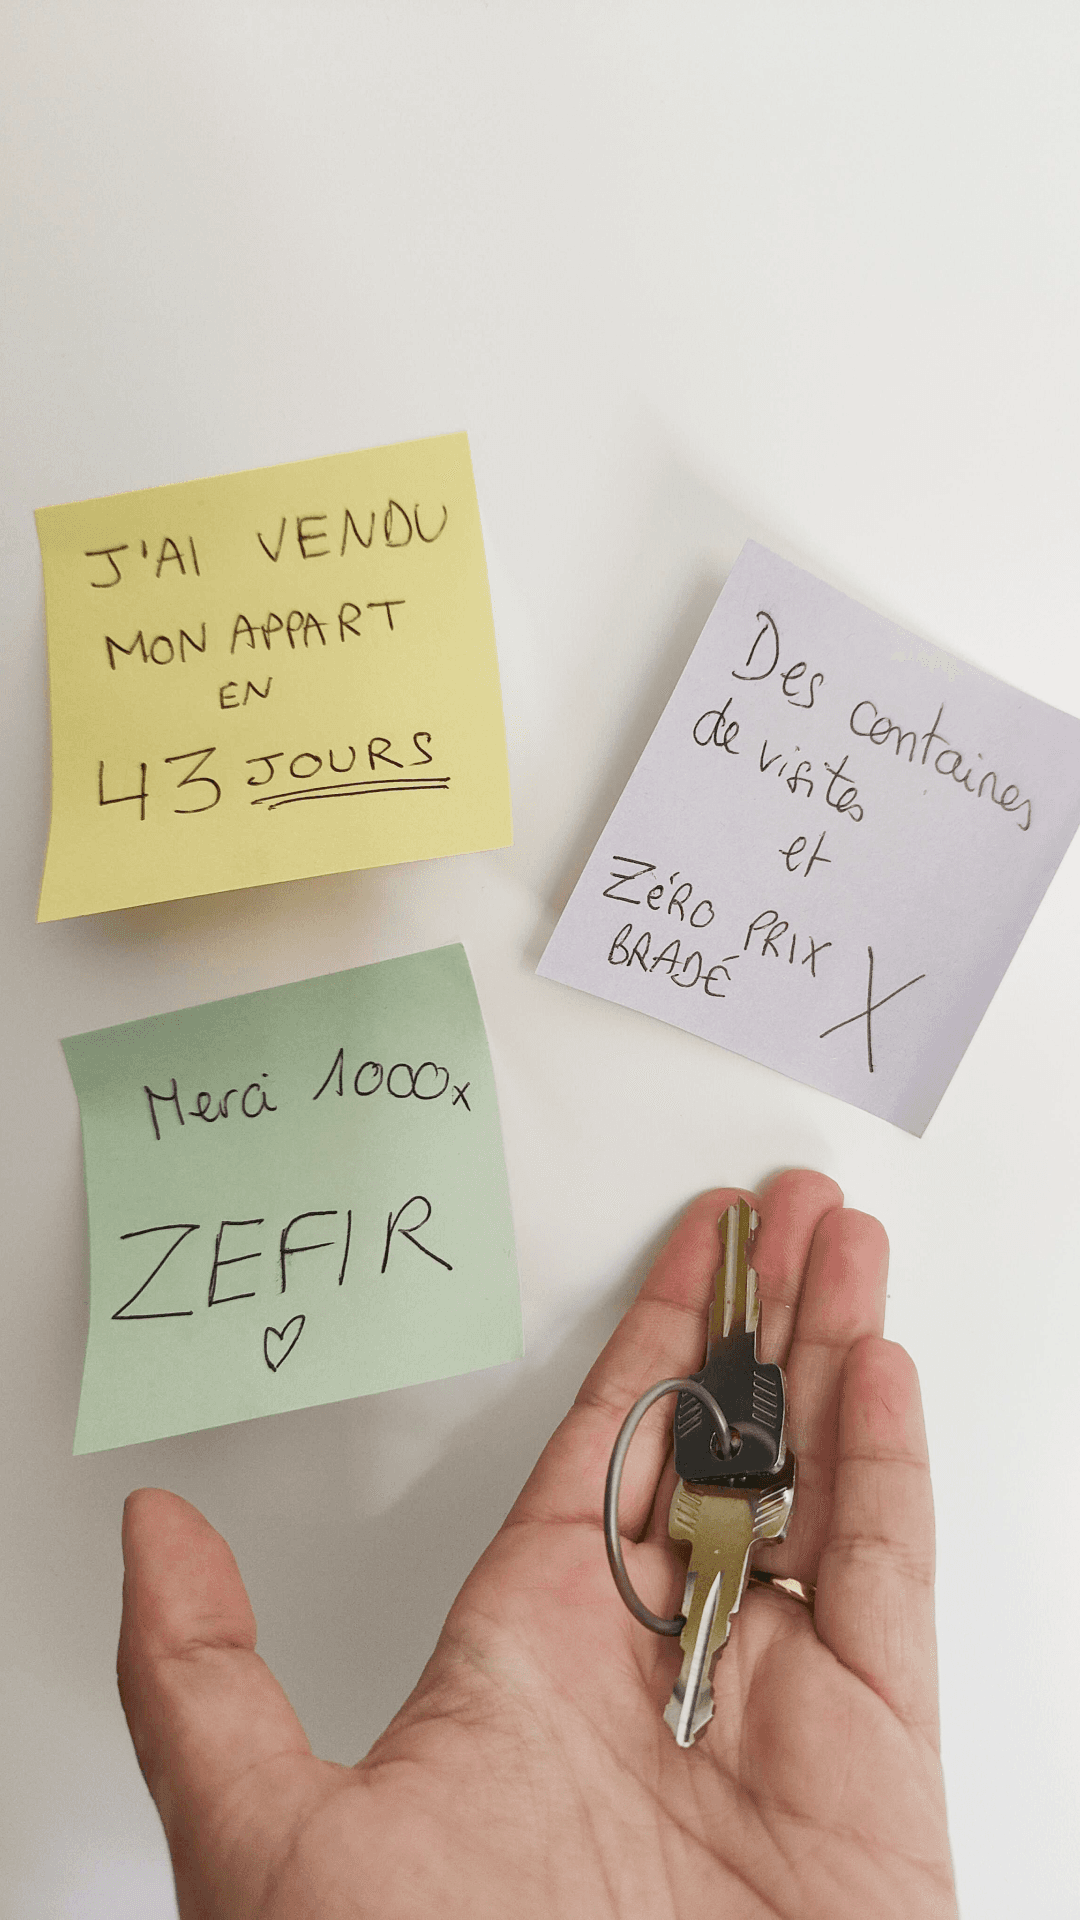 J'AI VENDU
MON APPART
EN
43 JOURS
Des containes
de visites
et
ZéRO PRIX
BRADÉ
X
Merci 1000x
ZEFIR
♡